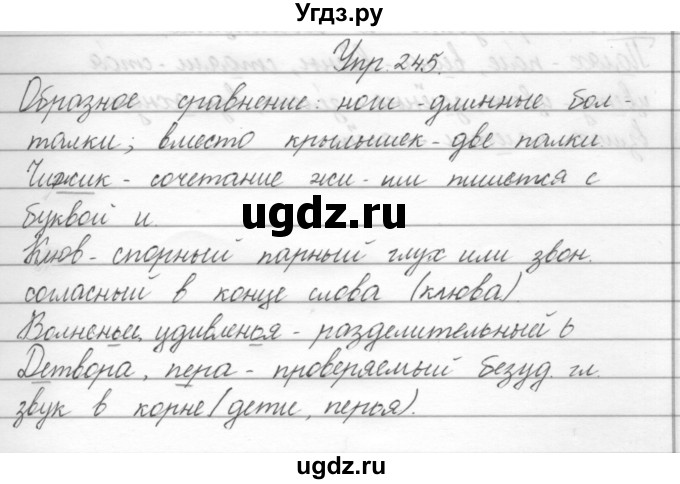 Угдз.ру
Упр. 245.
Образное сравнение: ноги - длинные бол-
талки; вместо крылышек - две палки
Чижик - сочетание жи - ши пишется с
буквой и.
Клюв - спорный парный глух или звон.
согласный в конце слова (клюва).
Волненья, удивленья - разделительный ь
Детвора, пера - проверяемый безуд. гл.
звук в корне (дети, перья).
ugdz.ru
ugdz.ru